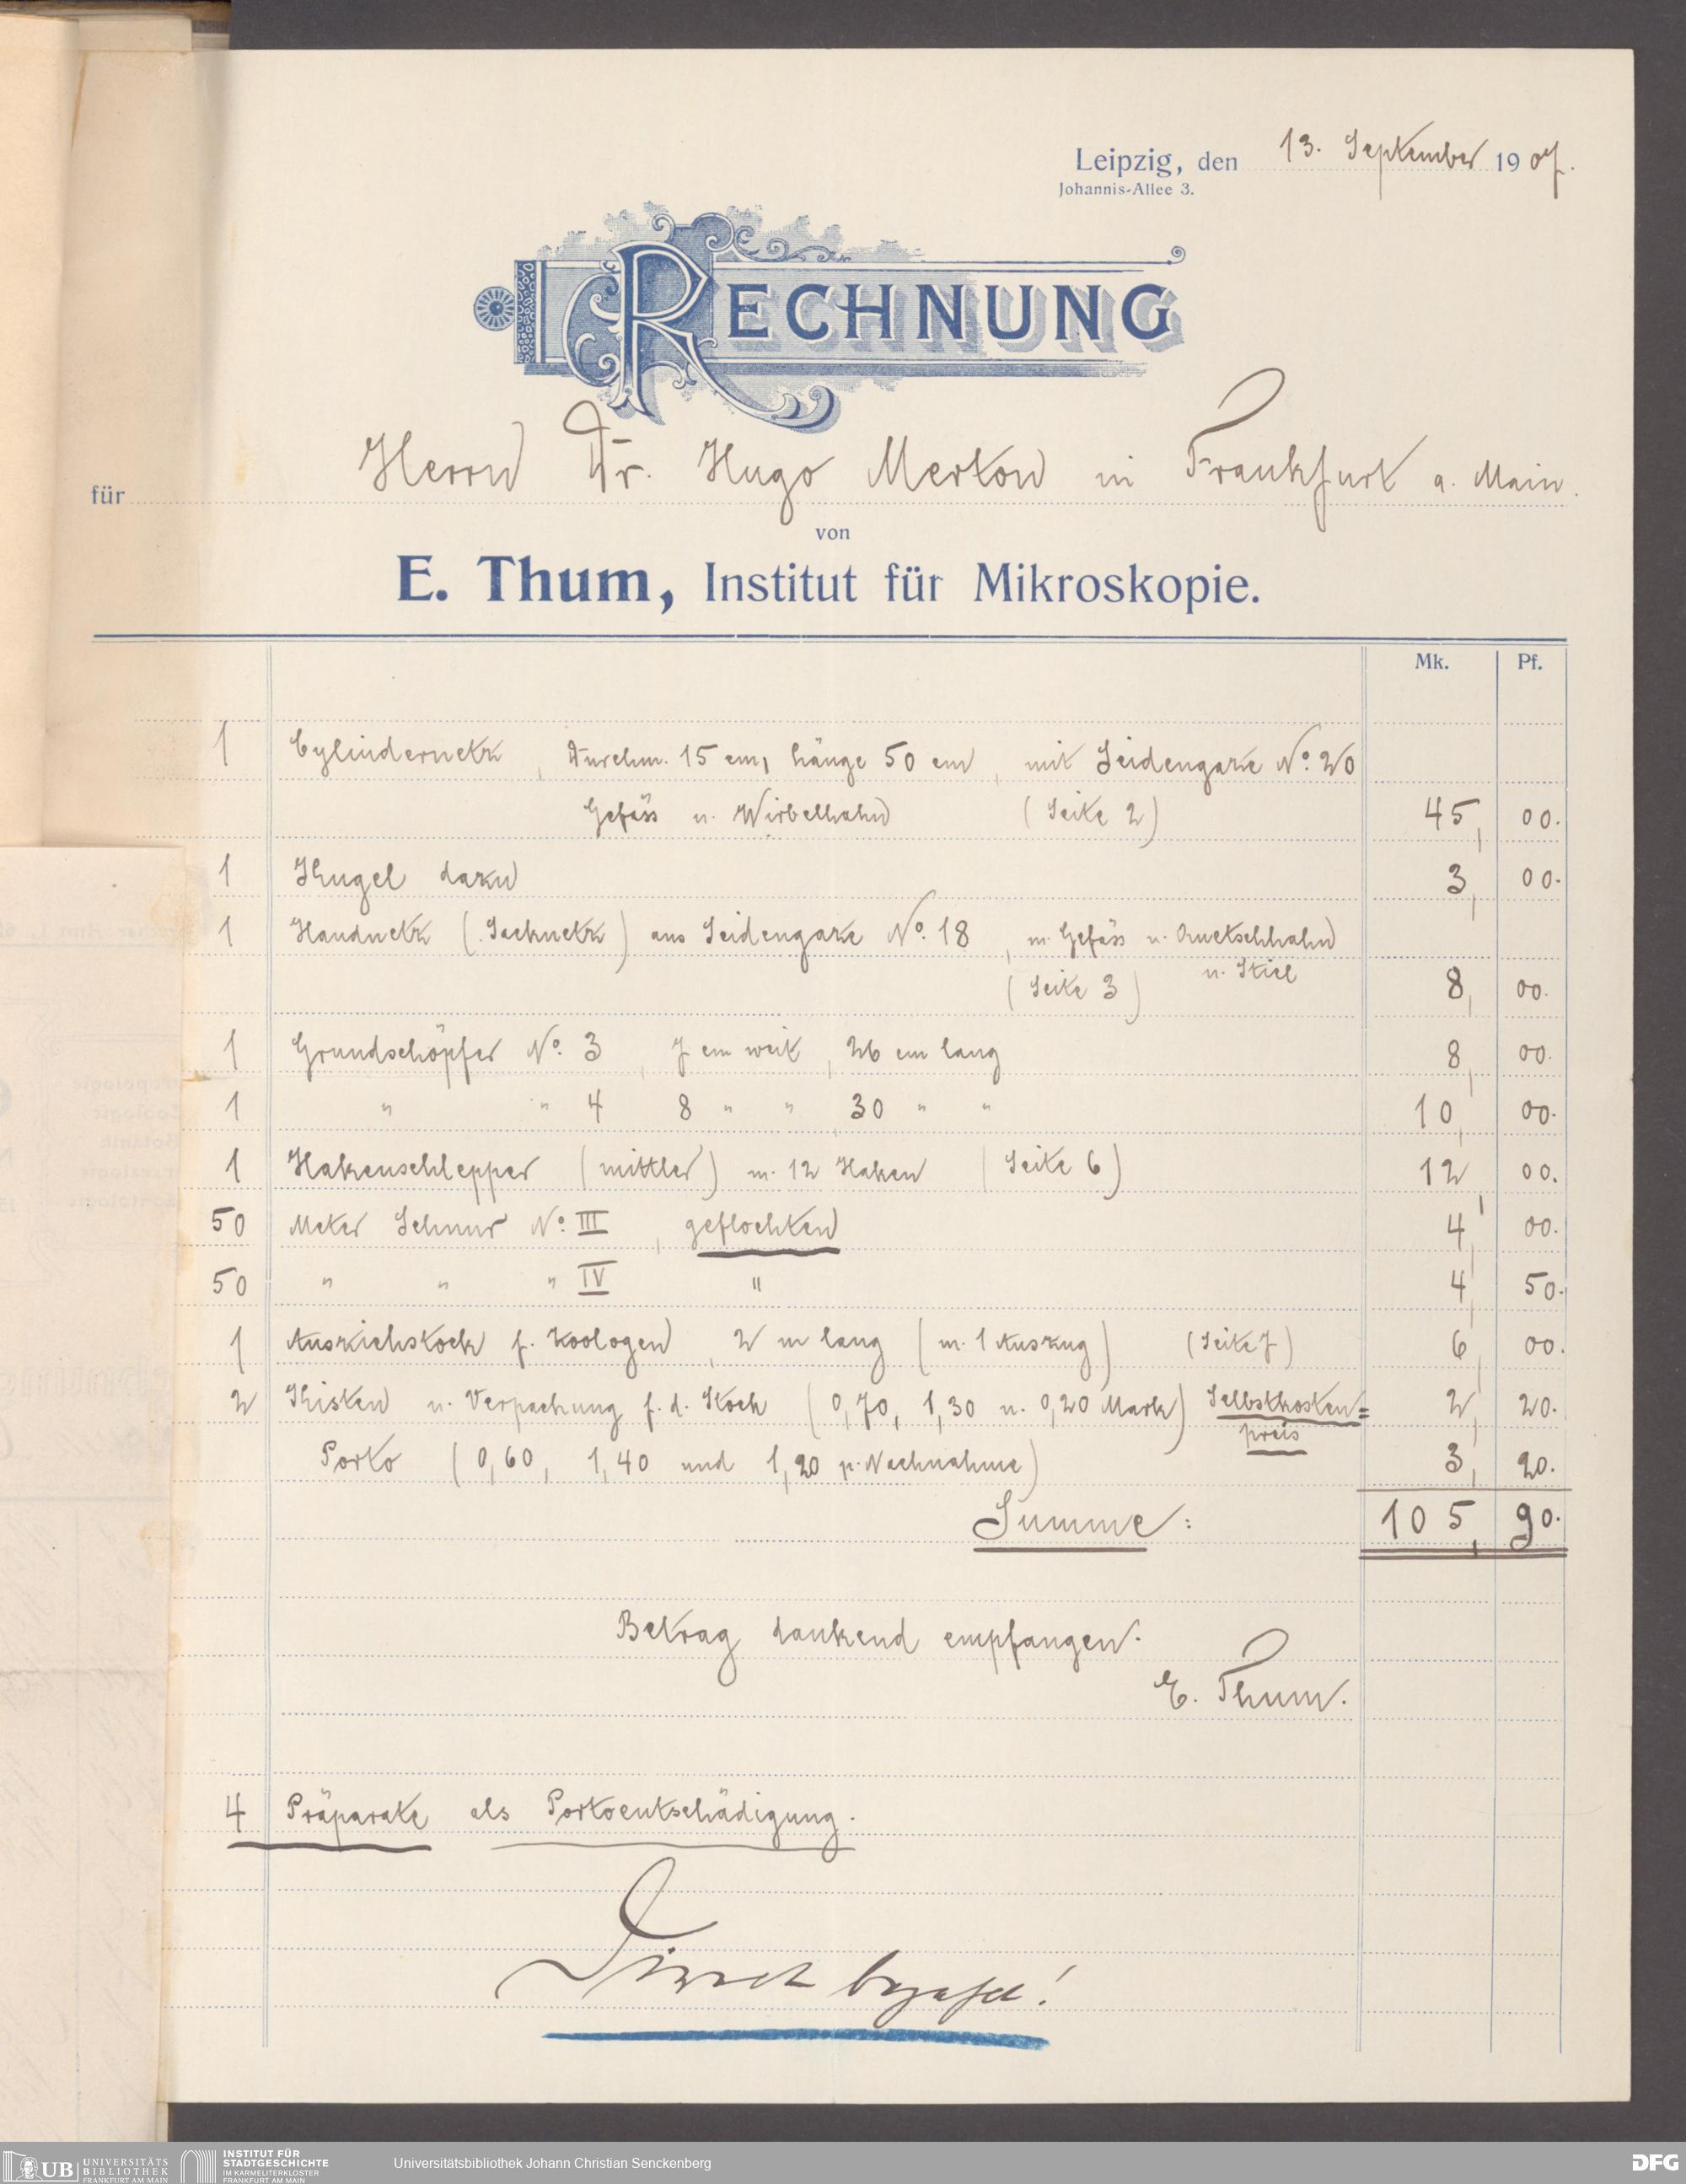 Leipzig, den 13. September 1907.
Johannis-Allee 3.
RECHNUNG
für Herrn Dr. Hugo Merton in Frankfurt a. Main.
von
E. Thum, Institut für Mikroskopie.
Mk. Pf.
1 Cylindernetz, Durchm. 15 cm, Länge 50 cm, mit Seidengaze No. 20
Gefäss u. Wirbelhahn (Seite 2) 45, 00.
1 Kugel dazu 3, 00.
1 Handnetz (Sacknetz) aus Seidengaze No. 18, m. Gefäss u. Quetschhahn
u. Stiel
(Seite 3) 8, 00.
1 Grundschöpfer No. 3, 7 cm weit, 26 cm lang 8, 00.
1 " " 4 8 " " , 30 " " 10, 00.
1 Hakenschlepper (mittler) m. 12 Haken (Seite 6) 12, 00.
50 Meter Schnur No. III, geflochten 4, 00.
50 " " " IV " 4, 50.
1 Ausziehstock f. Zoologen, 2 m lang (m. 1 Auszug) (Seite 7) 6, 00.
2 Kisten u. Verpackung f. d. Stock (0,70, 1,30 u. 0,20 Mark) Selbstkosten= 2, 20.
preis
Porto (0,60, 1,40 und 1,20 p. Nachnahme) 3, 20.
Summe: 105, 90.
Betrag dankend empfangen.
E. Thum.
4 Präparate als Portoentschädigung.
Direct bezahlt!
UB UNIVERSITÄTS
BIBLIOTHEK
FRANKFURT AM MAIN
INSTITUT FÜR
STADTGESCHICHTE
IM KARMELITERKLOSTER
FRANKFURT AM MAIN
Universitätsbibliothek Johann Christian Senckenberg
DFG